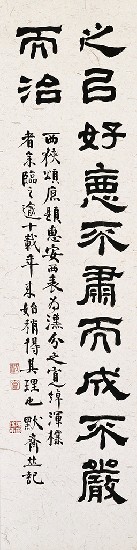 之以好惡不肅而成不嚴
而治
西狹頌庶類惠安西表為漢分之遒緯渾樸
者余臨之逾十載年來始稍得其理也 默齋並記